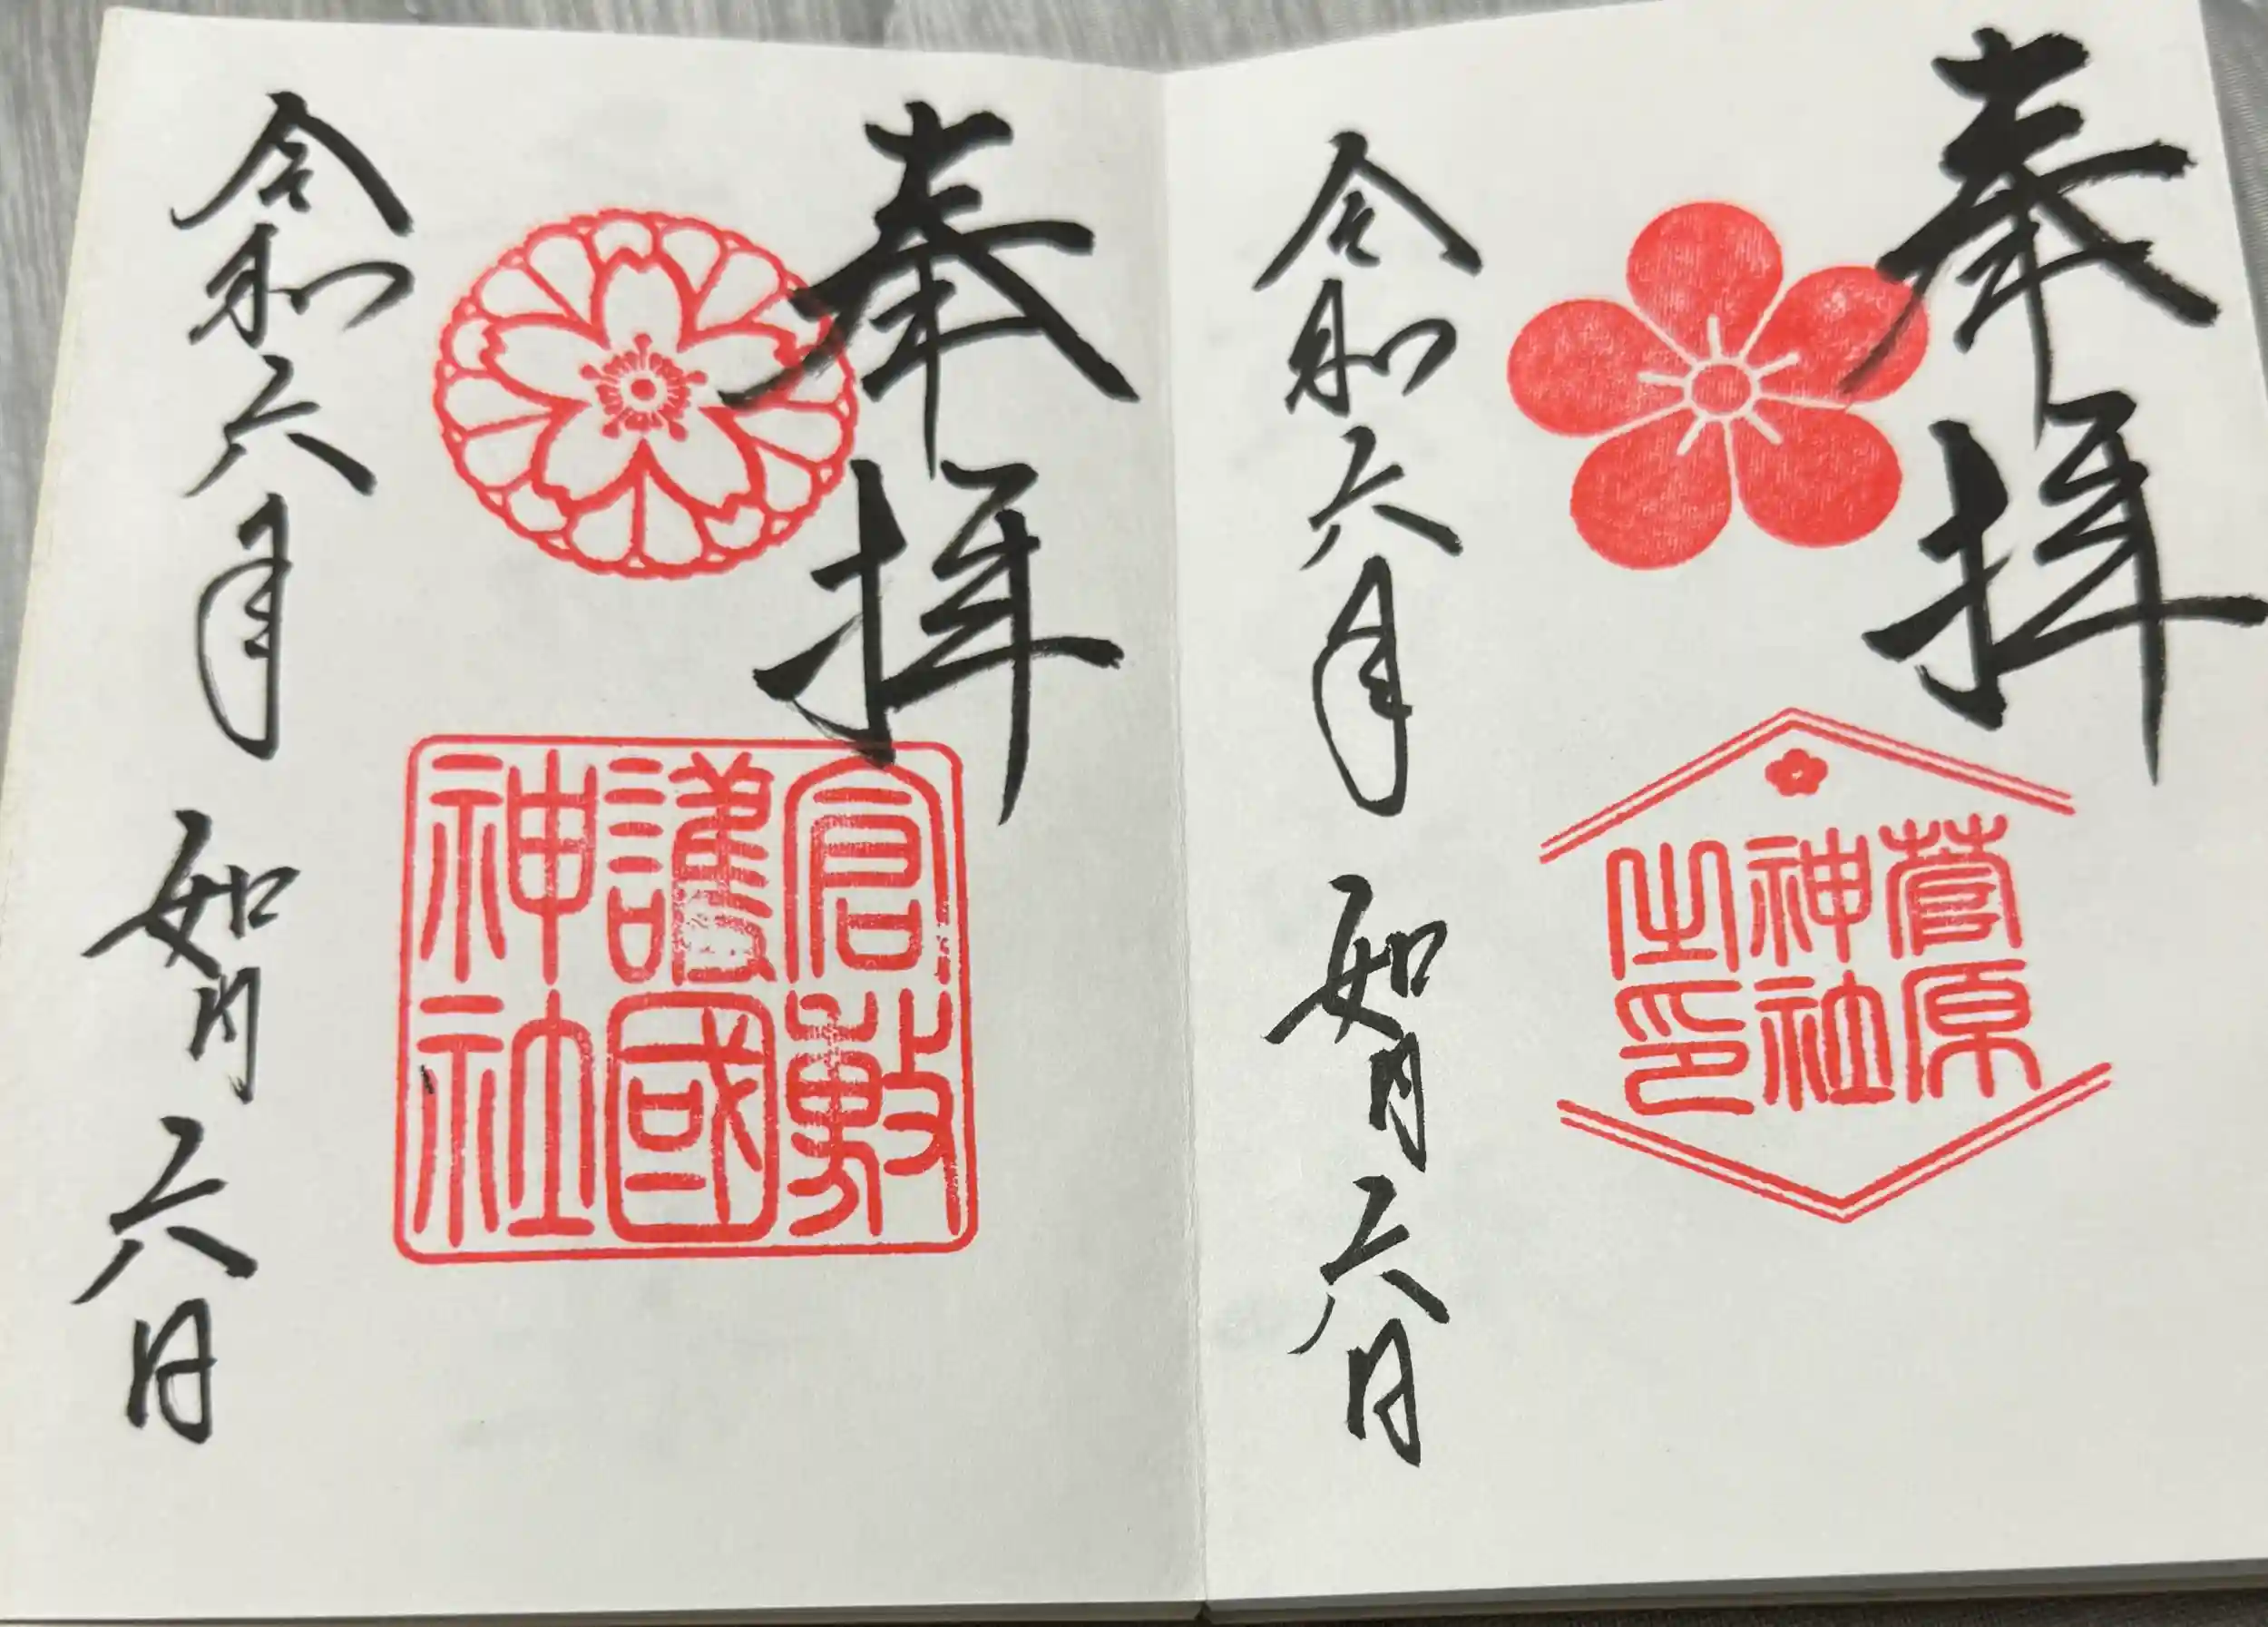 奉拝
菅原
神社
之印
令和六年 如月 六日
奉拝
倉敷
護國
神社
令和六年 如月 六日